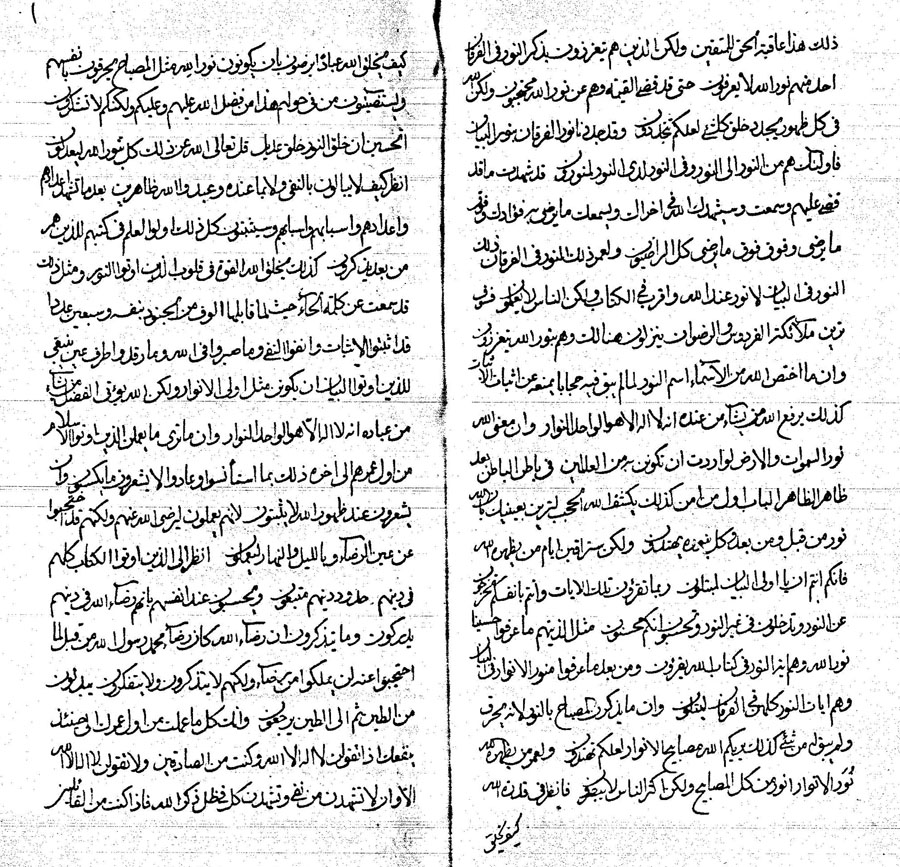 ذلك هذا عاقبة الحق للمتقين ولكن الذين هم يتعززون بذكر النور في الفرقان
احد منهم نور الله لا يعرفون حتى قد قضي القيمة وهم عن نور الله محتجبون ولكن الله
في كل ظهور يجدد خلق كلشيء لعلكم تجددون وقد جددنا نور الفرقان بنور البيان
فاولئك هم من النور الى النور وفي النور لدى النور لمنورون قد شهدت ما قد
قضي عليهم وسمعت وسيشهدك الله في اخراك ويسمعك ما يرضى به فؤادك وفوق
ما يرضى وفوق فوق ما يرضى كل الراضيون ولعمر ذلك المنور في الفرقان ذلك
النور في البيان لا نور عند الله واقرب في الكتاب ولكن الناس لا يعلمون فسوف
ترين ملائكة الفردوس والرضوان ينزلون هنالك وهم بنور الله يتعززون
وان ما اختص الله من الاسماء اسم النور لما لم يبق فيه حجابا يمنعه عن اثبات
كذلك يرفع الله من يشاء من عنده انه لا اله الا هو الواحد النوار وان معنى الله
نور السموات والارض لو اردت ان تكونن به من العالمين في باطن الباطن بعد
ظاهر الظاهر الباب اول من امن كذلك يكشف الله الحجب لترين بعينيك
نور من قبل ومن بعد وكل بنوره يهتدون ولكن ستراقبن ايام من يظهره الله
فانكم انتم ان يا اولي البيان لمبتلون ربما تقرؤن تلك الايات وانتم بانفسكم تخرجون
عن النور وتدخلون في غير النور وتحسبون انكم محسنون مثل الذينهم ما عرفوا
نور الله وهم اية النور في كتاب الله يقرؤن ومن بعد ما عرفوا منور الانوار في
وهم ايات النور كلهم في الفرقان ليتلون وان ما يذكر المصباح بالنور لانه يحرق
ولم يبق له من شيء كذلك يريكم الله مصابيح الانوار لعلكم تهتدون ولعمر من يظهره الله
نور الانوار انور من كل المصابيح ولكن اكثر الناس لا يبصرون فانظر في قدرة الله
كيف يخلق
كيف يخلق الله عبادا يرضون بان يكونون نور الله مثل المصباح يحرقون بانفسهم
وليستضيئون من في حولهم هذا من فضل الله عليهم وعليكم ولكنكم لا تشكرون
اتحسبن ان خلق النور خلق عديل قل تعالى الله عن ذلك كل بنور الله ليعدلون
انظر كيف لا يبالون بالنفي ولا بما عنده وعبدوا الله ظاهرين بعد ما تشهد اعدائهم
واعدادهم واسبابهم واسبابهم وسيثبتون كل ذلك اولوا العلم في كتبهم للذين هم
من بعد يذكرون كذلك يخلق الله القوة في قلوب الذين اوتوا النور ومثل ذلك
قد سمعت عن كلمة الحاء حيث لما قابلها الوف من الجنود بنفسه وسبعين عددا
قد اثبتوا الاثبات وانفوا النفي وما صبروا في الله وما رقدوا طرف عين ينبغي
للذين اوتوا البيان ان يكونن مثل اولى الانوار ولكن الله يؤتي الفضل من يشاء
من عباده انه لا اله الا هو الواحد النوار وان ما ترى ما يعملن الذين اوتوا الاسلام
من اول عمرهم الى اخره ذلك بما استأنسوا وعادوا لا يشعرون ما يكسبون وان
يشعرون عند ظهور الله لا يلبثون لانهم يعملون ليرضى الله عنهم ولكنهم قد احتجبوا
عن عين الرضاء وبالليل والنهار ليعملون انظر الى الذين اوتوا الكتاب كلهم
في دينهم حدود دينهم متبعون ويحسبون عند انفسهم بانهم رضاء الله في دينهم
يدركون وما يتذكرون ان رضاء الله كان رضاء محمد رسول الله من قبل لما
احتجبوا عنه لن يملكوا من رضاء ولكنهم لا يتذكرون ولا يتفكرون يبدلون
من الطين ثم الى الطين يرجعون وانك كل ما عملت من اول عمرك الى حينئذ
ينفعك اذا تقولن لا اله الا الله وكنت من الصادقين ولا تقولن لا اله الا الله
الاوان لا تشهدن من نفي وتشهدن كل في ظل ذكر الله فاذا كنت من القائلين